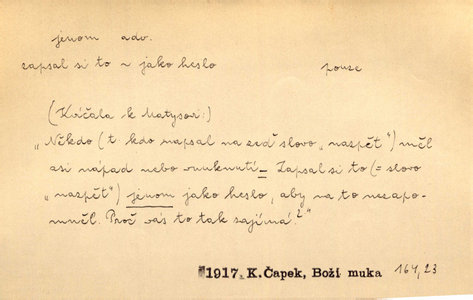 jenom adv.
zapsal si to ~ jako heslo pouze
(Kvíčala k Matysovi:)
"Někdo (t. kdo napsal na zeď slovo "nazpět") měl
asi nápad nebo vnuknutí – Zapsal si to (= slovo
"nazpět") jenom jako heslo, aby na to nezapo-
mněl. Proč vás to tak zajímá?"
1917. K.Čapek, Boží muka 164,23